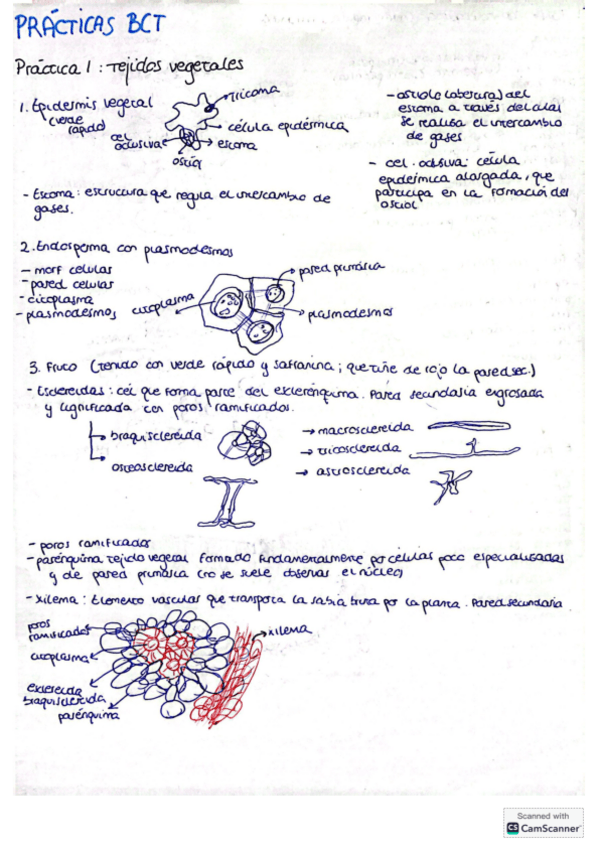 PRÁCTICAS BCT
Práctica 1: Tejidos vegetales
1. Epidermis vegetal
(verde
rápido)
tricoma
célula epidérmica
cel
oclusiva
estoma
ostiol
- ostiolo (abertura) del
estoma a través del cual
se realiza el intercambio
de gases
- cel. oclusiva: célula
epidérmica alargada, que
participa en la formación del
ostiol
- Estoma: estructura que regula el intercambio de
gases.
2. Endosperma con plasmodesmos
- morf celulas
- pared celulas
- citoplasma
- plasmodesmos
citoplasma
pared primaria
plasmodesmos
3. Fruto (teñido con verde rápido y safranina; que tiñe de rojo la pared sec.)
- Esclereidas: cél que forma parte del esclerénquima. Pared secundaria engrosada
y lignificada con poros ramificados.
braquisclereida
osteosclereida
→ macrosclereida
→ tricosclereida
→ astrosclereida
- poros ramificados
- parénquima tejido vegetal formado fundamentalmente por células poco especializadas
y de pared primaria (no se suele observar el núcleo)
- Xilema: Elemento vascular que transporta la savia bruta por la planta. Pared secundaria
poros
ramificados
citoplasma
esclereida
braquisclereida
parénquima
xilema
Scanned with
CS CamScanner